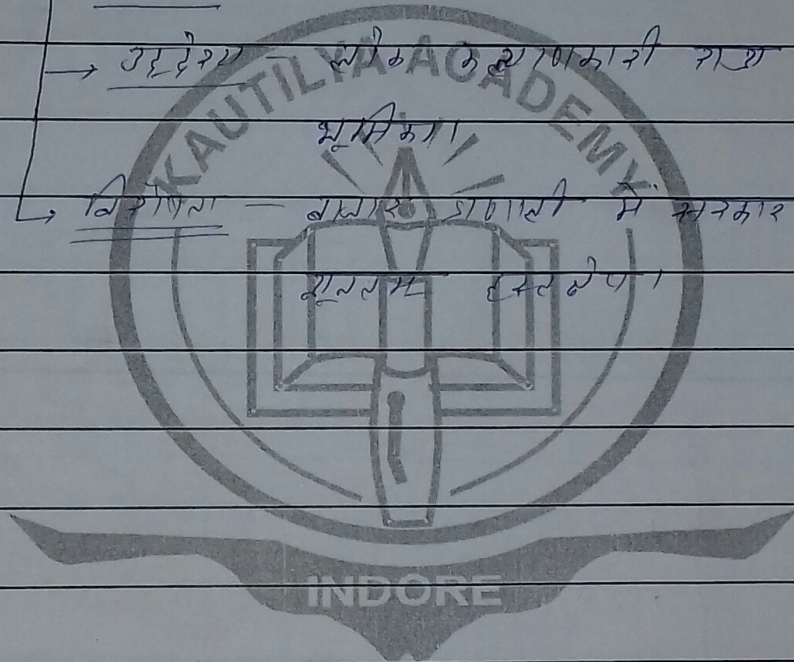 → उद्देश्य – लोक कल्याणकारी राज्य
भूमिका।
→ विशेषता – बाजार प्रणाली में सरकार
न्यूनतम हस्तक्षेप।
KAUTILYA ACADEMY
INDORE